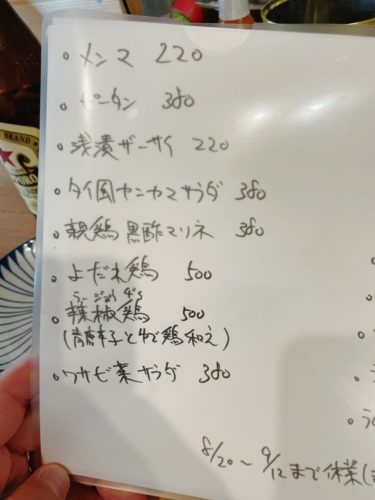 ・メンマ 220
・ピータン 380
・浅漬ザーサイ 220
・タイ風ヤンカマサラダ 380
・親鶏黒酢マリネ 380
・よだれ鶏 500
ラージョウ
・辣椒鶏 500
(青唐辛子とゆで鶏和え)
・ワサビ菜サラダ 380
8/20〜9/12まで休業(
BRAND